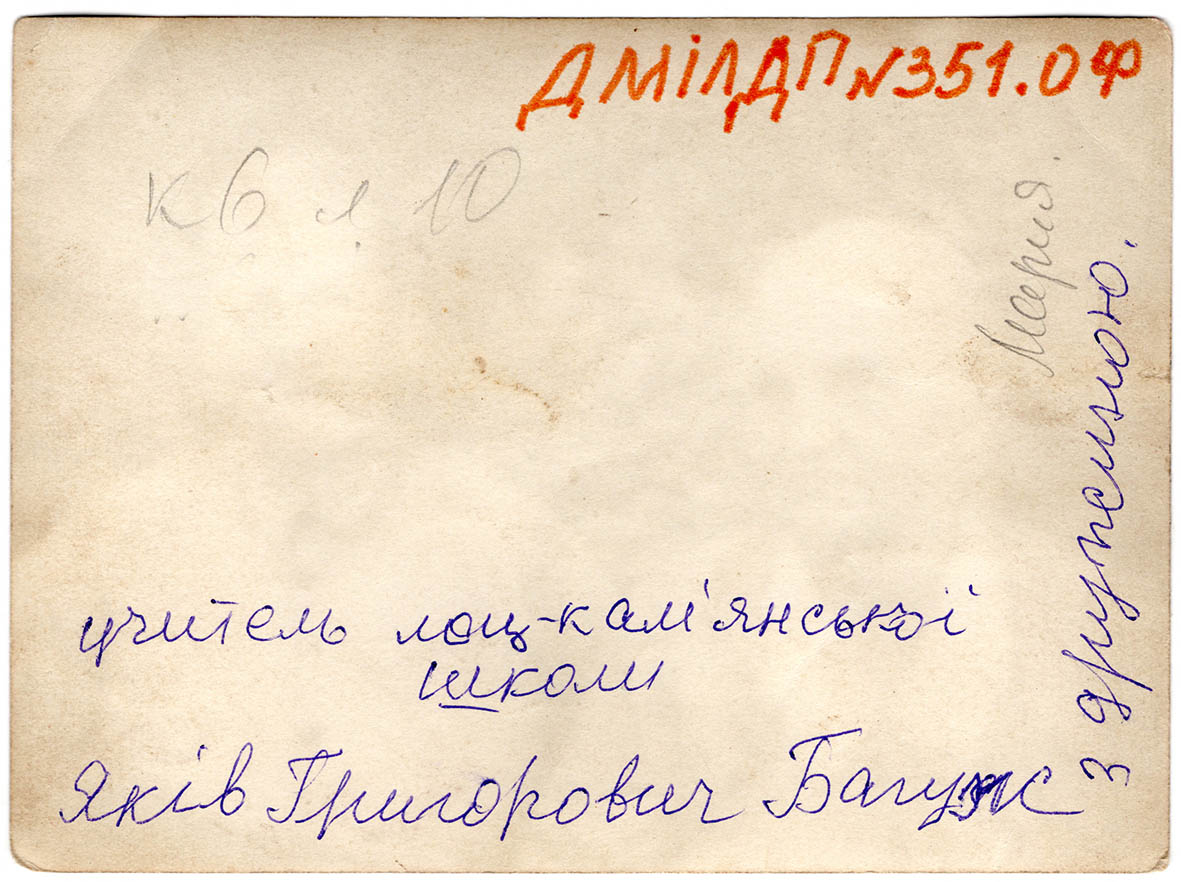 ДМІЛДП N351.ОФ
к 6 л 10
Мария.
з дружиною.
учитель лоц-кам'янської
школи
Яків Григорович